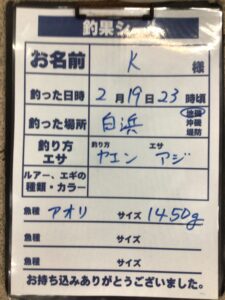 釣果シート
お名前 K 様
釣った日時 2月19日23時頃
釣った場所 白浜 地磯 沖磯 堤防
釣り方 エサ 釣り方 ヤエン エサ アジ
ルアー、エギの種類・カラー
魚種 アオリ サイズ 1450g
魚種 サイズ
魚種 サイズ
お持ち込みありがとうございました。